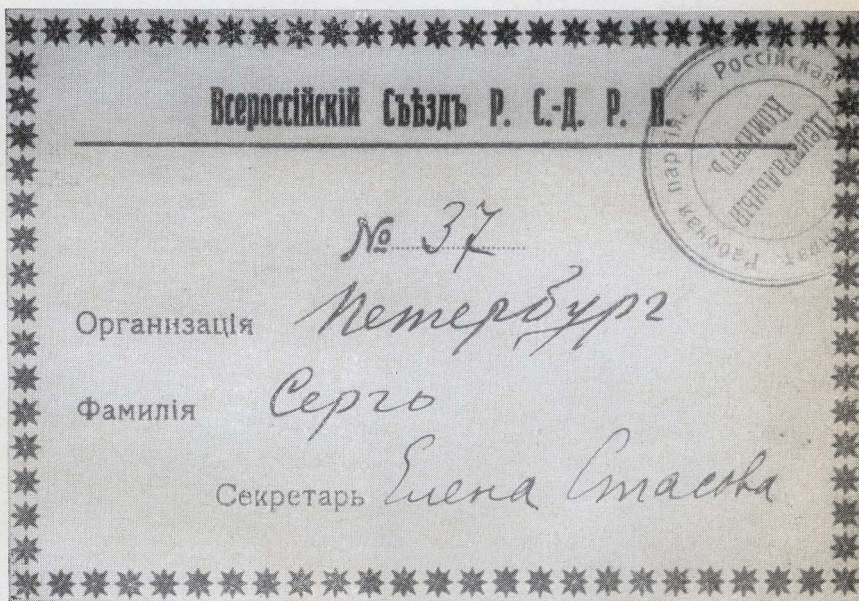 Всероссійскій Съѣздъ Р. С.-Д. Р. П.
№ 37
Организація Петербург
Фамилія Серго
Секретарь Елена Стасова
Россійская
Рабочая партія.
Центральный
Комитетъ